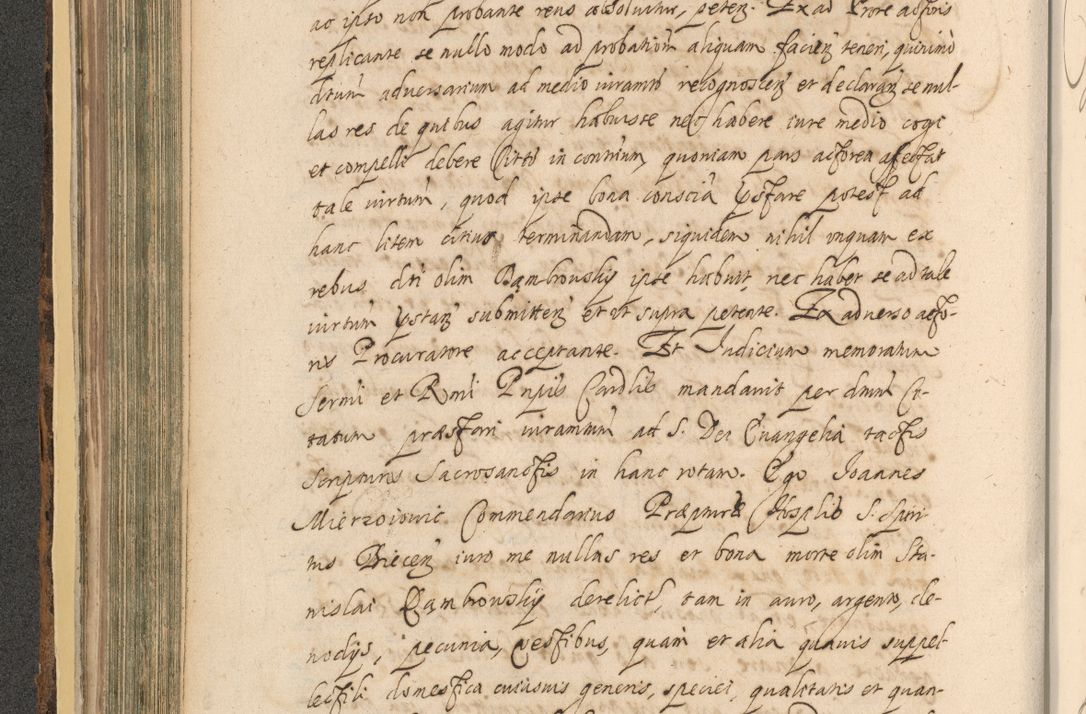 ac ipso non probante reus absolvatur, peten. Ex ad Prore actoris
replicante se nullo modo ad probationem aliquam facien teneri, quinimo
ditum adversarium ad medio iuramto recognoscen et declaran se nul-
las res de quibus agitur habuisse nec habere iure medio cogi
et compelli debere Citto in contrium, quoniam pars actorea afectat
tale iurtum, quod ipse bona conscia pstare potest ad
hanc litem citius terminandam, siquidem nihil unquam ex
rebus dti olim Bambrowskij ipse habuit, nec habet se ad tale
iurtum pstan submitten et ut supra petente. Ex adverso acto-
ris Procuratore acceptante. Et Judicium memoratum
Sermi et Rmi Pnpis Cardlis mandavit per dmum Ci-
tatum præstari iuramtum ad S. Dei Evangelia tactis
Scripturis Sacrosanctis in hanc rotam. Ego Joannes
Mierzoiowic Commendarius Præpturæ Hosplis S. Spiri
tus Biecen iuro me nullas res et bona morte olim Sta-
nislai Bambrowskij derelict, tam in auro, argento, cle-
nodijs, pecunia, vestibus, quam et alia quavis suppel
lectili domestica cuiusvis generis, speciei, qualitatis et quan-